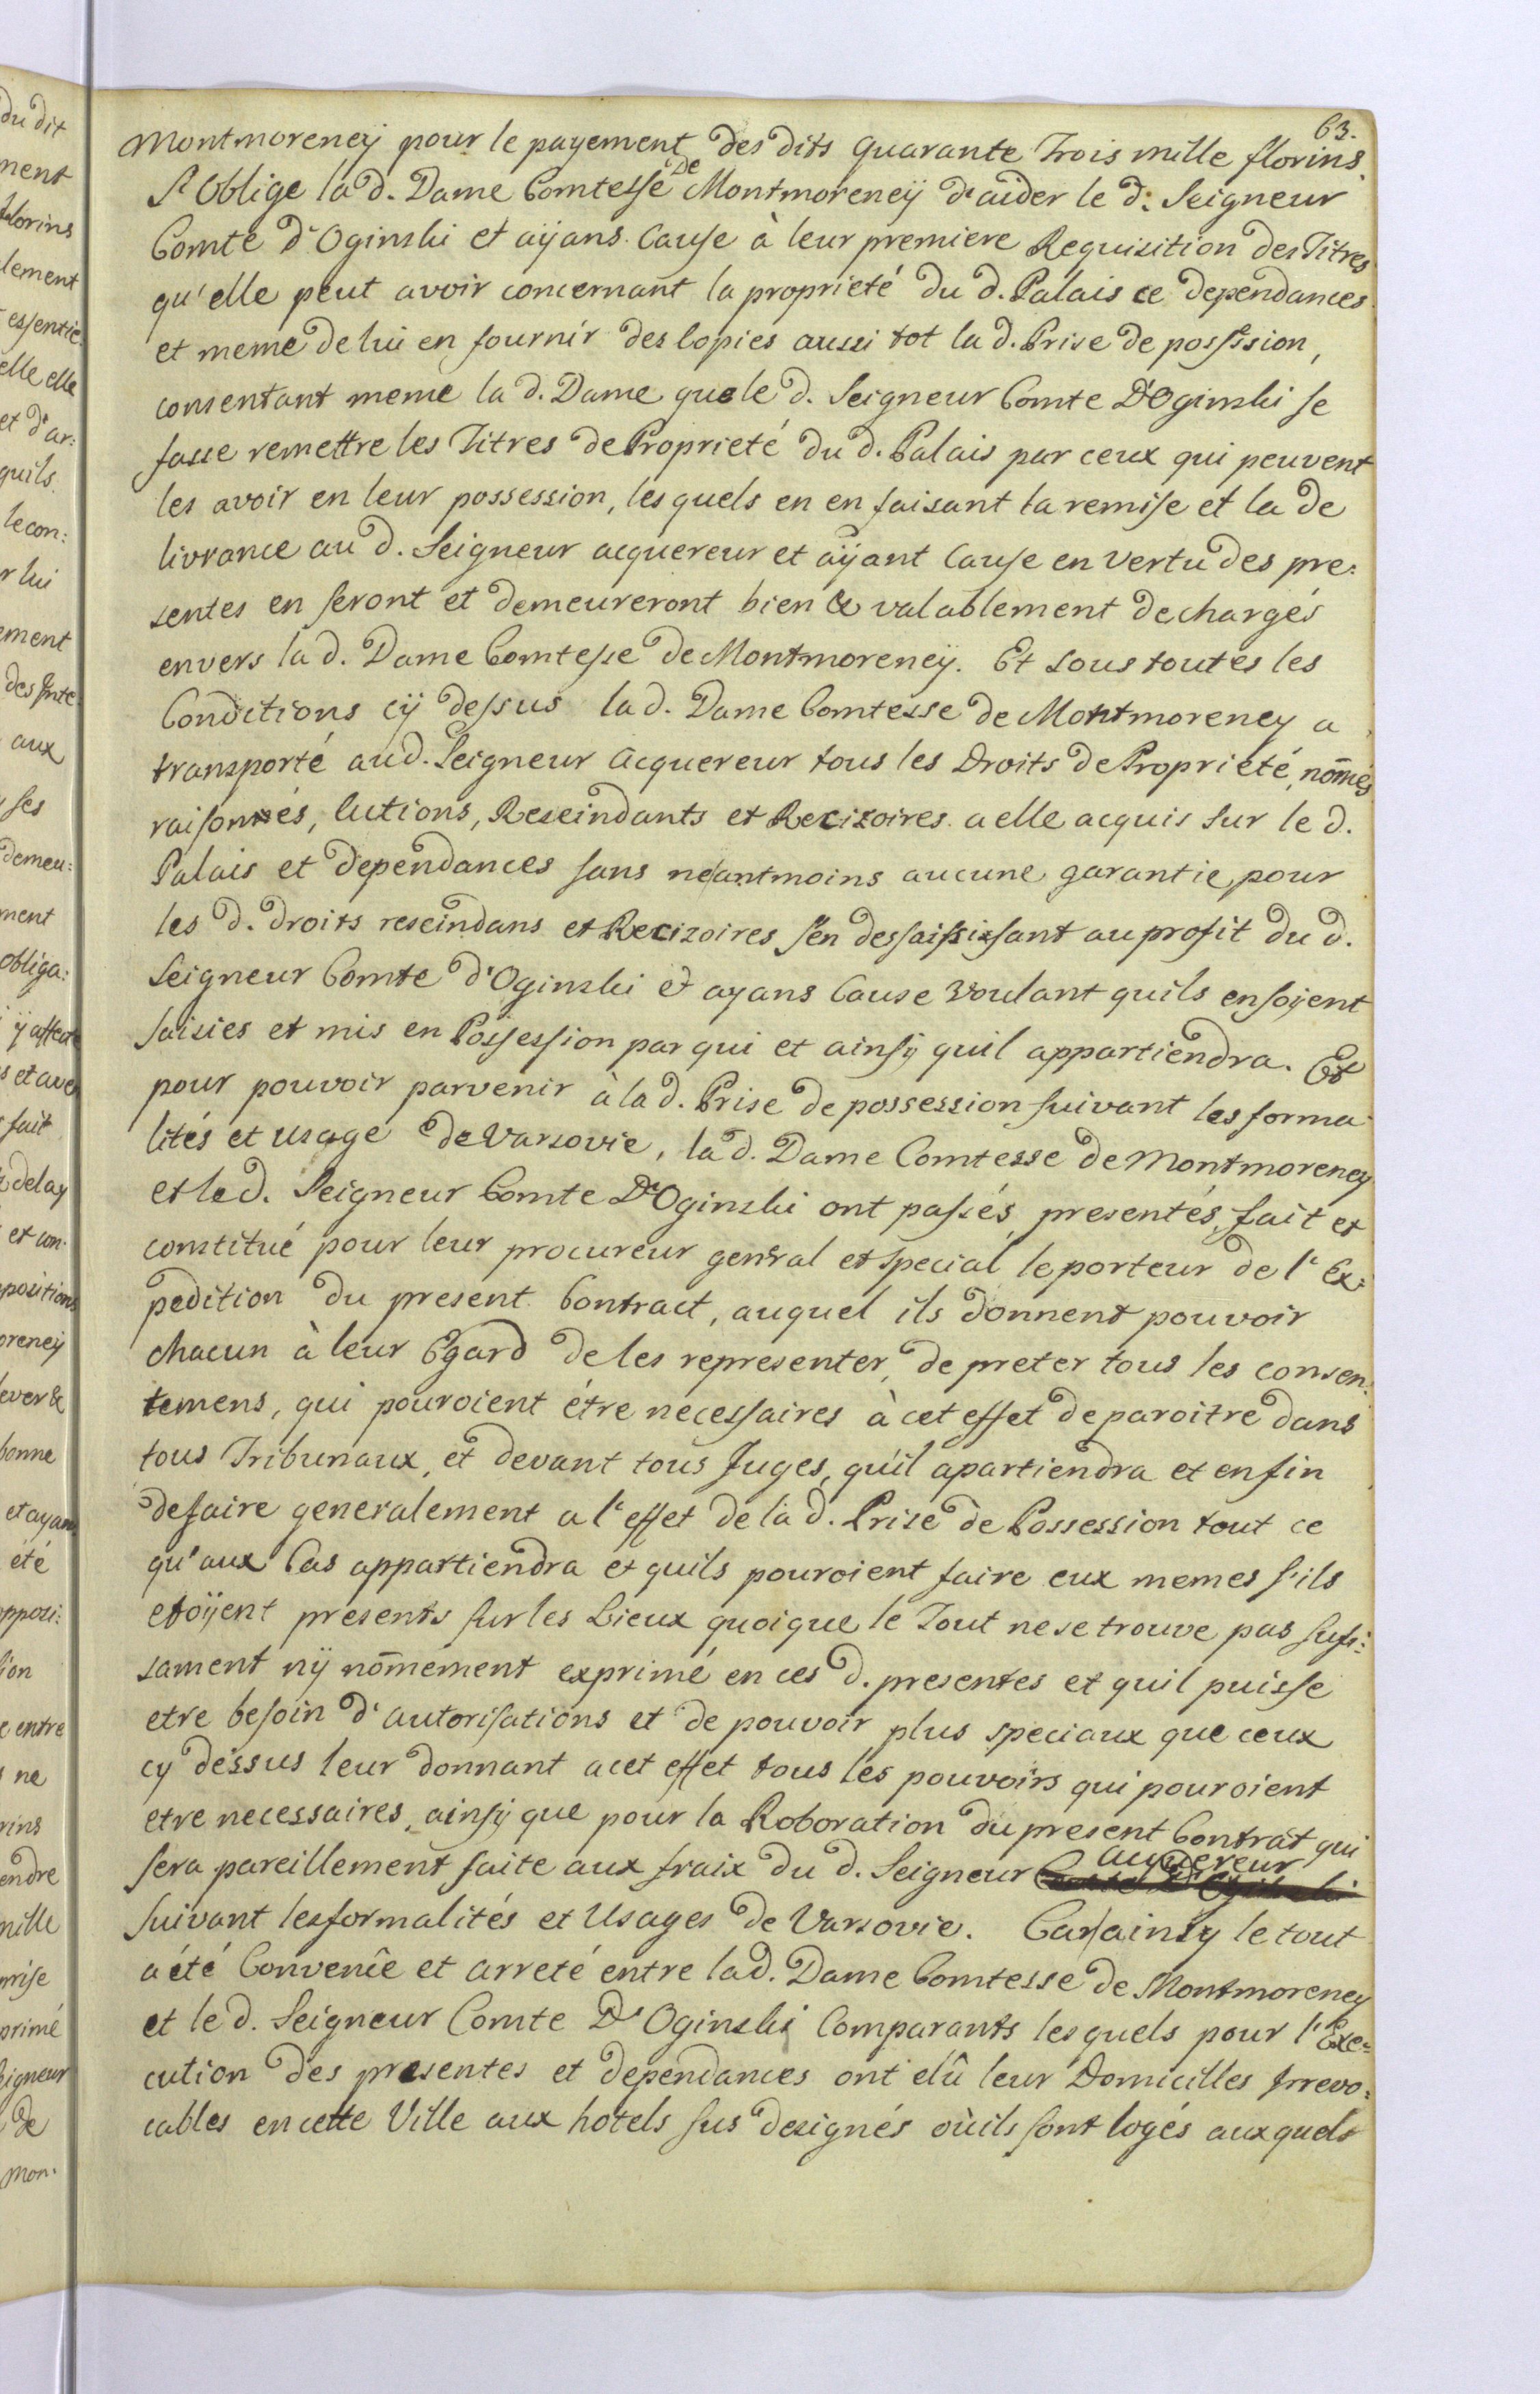 63.
Montmorencÿ pour le payement des dits quarante Trois mille florins.
S'Oblige la d. Dame Comtesse De Montmorencÿ d'aider le d. Seigneur
Comte d'Oginski et aÿans Cause à leur premiere Requisition des Titres
qu'elle peut avoir concernant la proprieté du d. Palais ce dependances
et meme de lui en fournir des Copies aussi tot la d. Prise de possession,
consentant meme la d. Dame que le d. Seigneur Comte D'Oginski se
fasse remettre les Titres de Proprieté du d. Palais par ceux qui peuvent
les avoir en leur possession, les quels en en faisant la remise et la de
livrance au d. Seigneur acquereur et aÿant Cause en vertu des pre:
sentes en seront et demeureront bien & valablement dechargés
envers la d. Dame Comtesse de Montmorencÿ. Et sous toutes les
Conditions cÿ dessus la d. Dame Comtesse de Montmorency a
transporté au d. Seigneur Acquereur tous les Droits de Proprieté, nom̄és
raisonnés, Actions, Rescindants et Recizoires a elle acquis sur le d.
Palais et dependances sans neantmoins aucune garantie pour
les d. droits rescindans et Recizoires s'en dessaisissant au profit du d.
Seigneur Comte d'Oginski et ayans Cause voulant quils en soÿent
saisies et mis en Possession par qui et ainsÿ quil appartiendra. Et
pour pouvoir parvenir à la d. Prise de possession suivant les forma
lités et usage de Varsovie, la d. Dame Comtesse de Montmorency
et le d. Seigneur Comte D'Oginski ont passés presentés, fait et
constitué pour leur procureur general et special le porteur de l'Ex:
pedition du present Contract, auquel ils donnent pouvoir
chacun à leur Egard de les representer, de preter tous les consen:
temens, qui pouroient étre necessaires à cet effet de paroitre dans
tous Tribunaux, et devant tous Juges, qu'il apartiendra et enfin
de faire generalement a l'effet de la d. Prise de Possession tout ce
qu'aux Cas appartiendra et quils pouroient faire eux memes s'ils
etoÿent presents sur les Lieux quoique le Tout ne se trouve pas sufi:
sament nÿ nom̄ement exprimé en ces d. presentes et quil puisse
etre besoin d'autorisations et de pouvoir plus speciaux que ceux
cy dessus leur donnant a cet effet tous les pouvoirs qui pouroient
etre necessaires, ainsÿ que pour la Roboration du present Contrat qui
sera pareillement faite aux fraix du d. Seigneur acquereur
suivant les formalités et Usages de Varsovie. Car ainsy le tout
a été Convenüe et arreté entre la d. Dame Comtesse de Montmorency
et le d. Seigneur Comte D'Oginski Comparants lesquels pour l'Exe:
cution des presentes et dependances ont elû leur Domicilles Irrevo:
cables en cette Ville aux hotels sus designés où ils sont logés aux quels